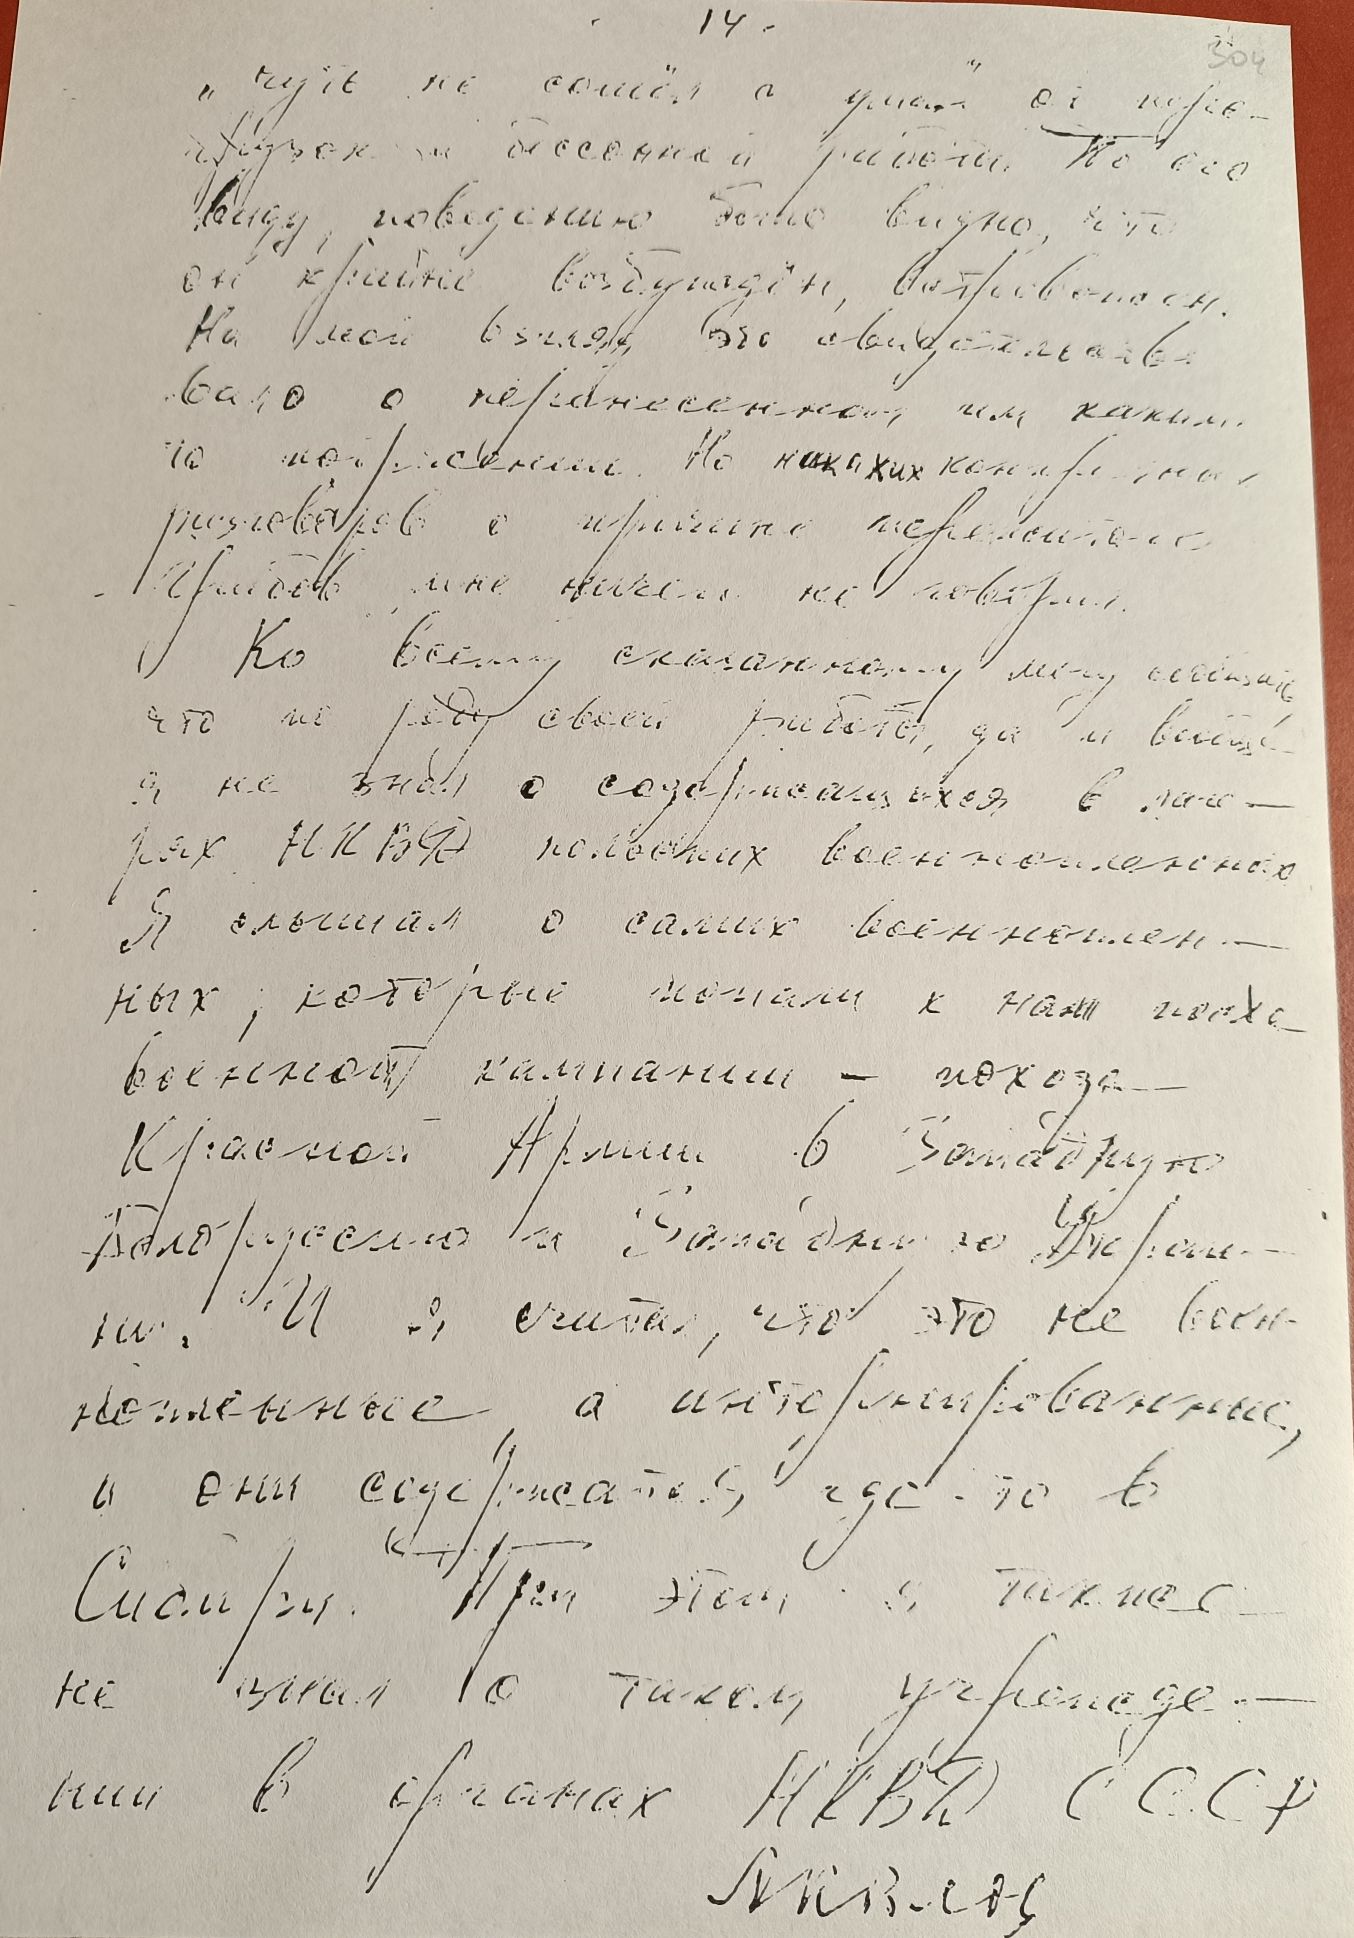 14.
304
"чуть не сошёл с ума" от пере-
грузок и бессонной работы. По его
виду, поведению было видно, что
он крайне возбуждён, встревожен.
На мой взгляд, это свидетельство-
вало о перенесенном им каком
то потрясении. Но никаких конкретных
разговоров о причине пережитого
мне ничего не говорил.
Ко всему сказанному могу сообщить
что по роду своей работы, да и вообще
я не знал о содержащихся в лаге-
рях НКВД польских военнопленных
Я слышал о самих военноплен-
ных, которые попали к нам после
военной кампании - похода
Красной Армии в Западную
Белоруссию и Западную Украи-
ну. И я считал, что это не воен-
нопленные, а интернированные,
и они содержатся где-то в
Сибири. При этом я также
не знал о таком учрежде-
нии в органах НКВД СССР